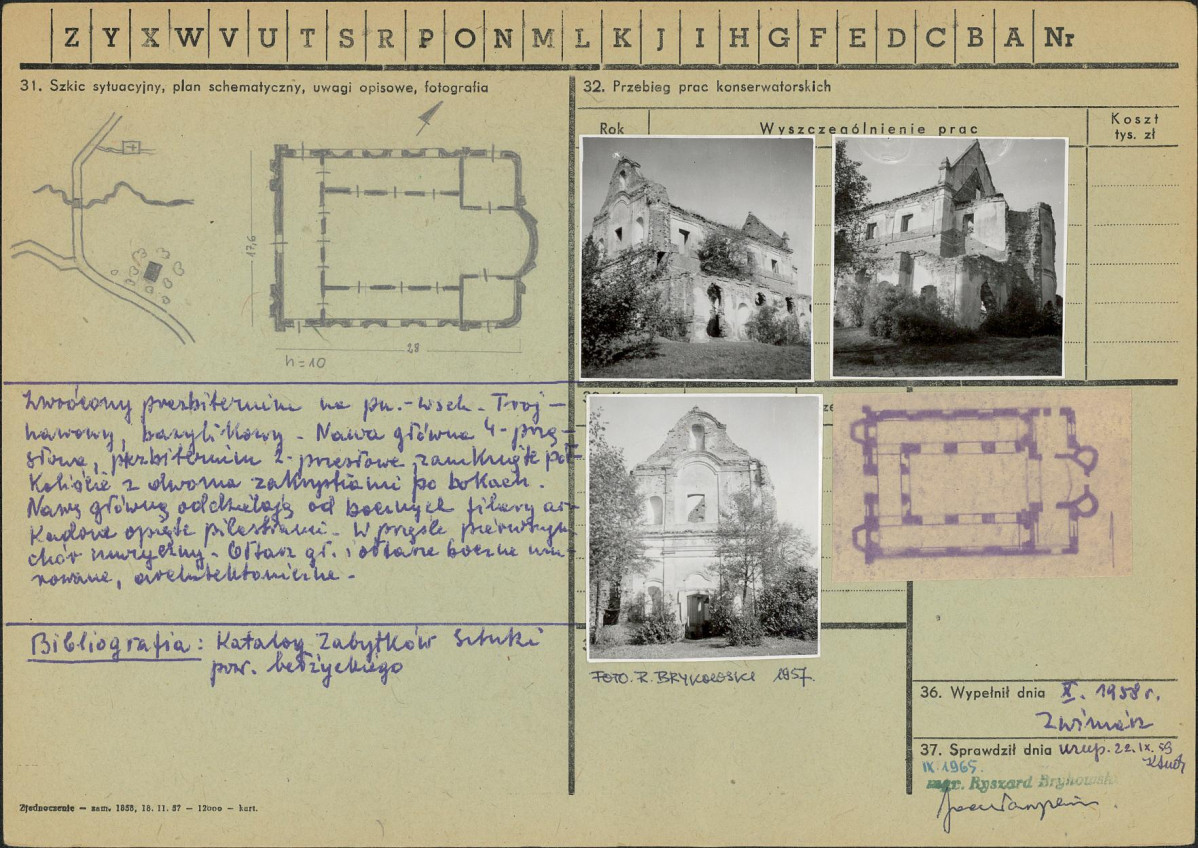 Z Y X W V U T S R P O N M L K J I H G F E D C B A Nr
31. Szkic sytuacyjny, plan schematyczny, uwagi opisowe, fotografia
17,6
28
h = 10
Zwrócony prezbiterium na pn.-wsch. Trój-
nawowy, bazylikowy. Nawa główna 4-przę-
słowa, prezbiterium 2-przęsłowe, zamknięte pół-
koliście z dwoma zakrystiami po bokach.
Nawę główną oddzielają od bocznych filary ar-
kadowe opięte pilastrami. W przęśle pierwszym
chór muzyczny. Ołtarz gł. i ołtarze boczne mu-
rowane, architektoniczne.
Bibliografia: Katalog Zabytków Sztuki
pow. bełżyckiego
Zjednoczenie – zam. 1858, 18. 11. 57 – 12000 – kart.
32. Przebieg prac konserwatorskich
Rok
Wyszczególnienie prac
Koszt
tys. zł
FOTO. R. BRYKOWSKI 1957.
36. Wypełnił dnia X. 1958 r.
37. Sprawdził dnia uzup. 22.IX.59
IX 1965.
mgr. Ryszard Brykowski